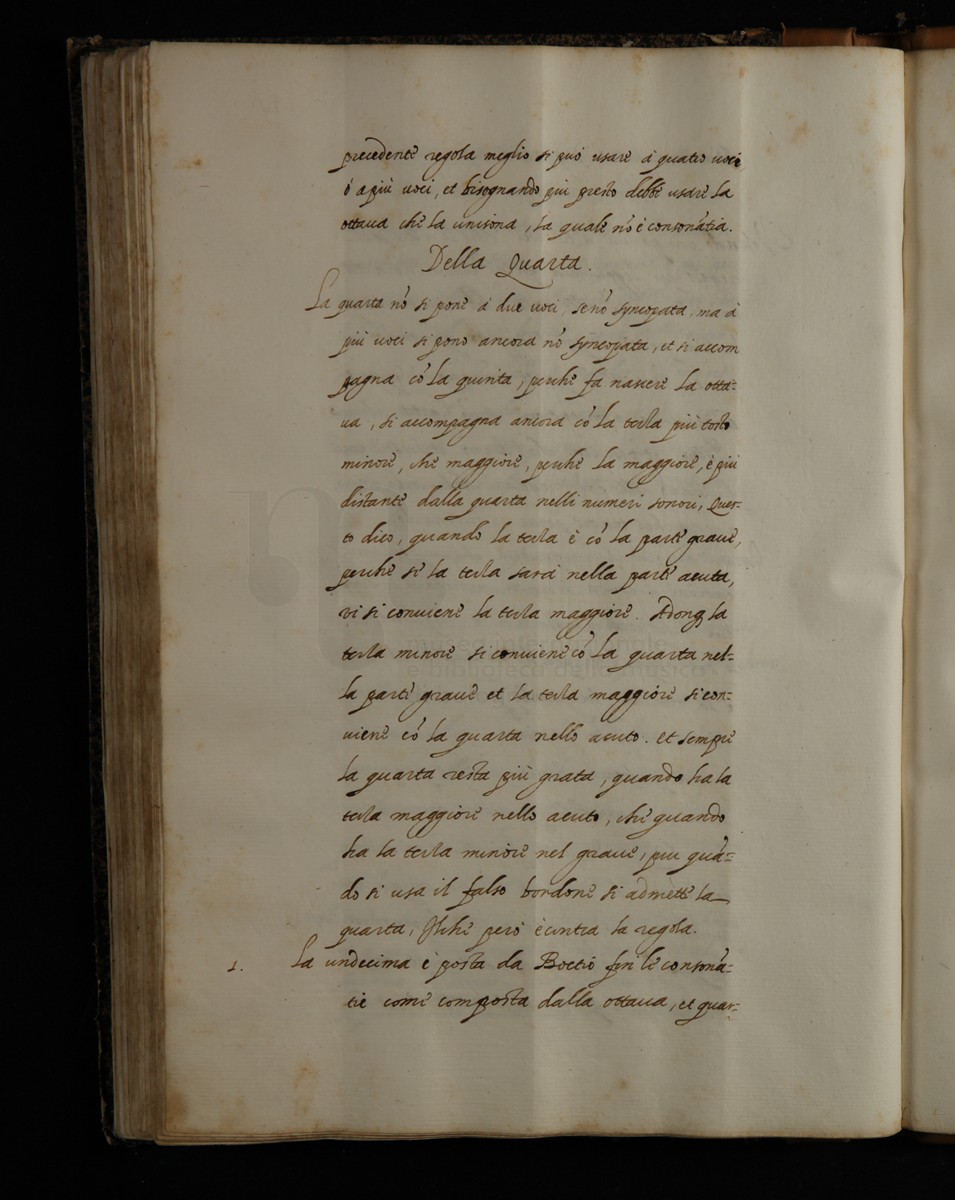 precedente regola meglio si può usare à quatro uoci
ò a più uoci, et bisognando più presto debbe usare la
ottaua che la unisona, la quale nõ è consonãtia.
Della Quarta.
La quarta nõ si pone à due uoci, senõ syncopata, ma à
più uoci si pono ancora nõ syncopata, et si accom
pagna cõ la quinta, perche fa nascere la otta=
ua, si accompagna ancora cõ la terza più tosto
minore, che maggiore, perche la maggiore, è più
distante dalla quarta nelli numeri sonori, Ques-
to dico, quando la terza è cõ la parte graue,
perche se la terza sarà nella parte acuta,
vi si conuiene la terza maggiore. Adonq la
terza minore si conuiene cõ la quarta nel=
la parte graue et la terza maggiore si con-
uiene cõ la quarta nello acuto. et sempre
la quarta resta più grata, quando ha la
terza maggiore nello acuto, che quando
ha la terza minore nel graue, quã=
do si usa il falso bordone si admette la
quarta, però è contra la regola.
1. La undecima è posta da Boetio fra le consonã=
tie come composta dalla ottaua, et quar=